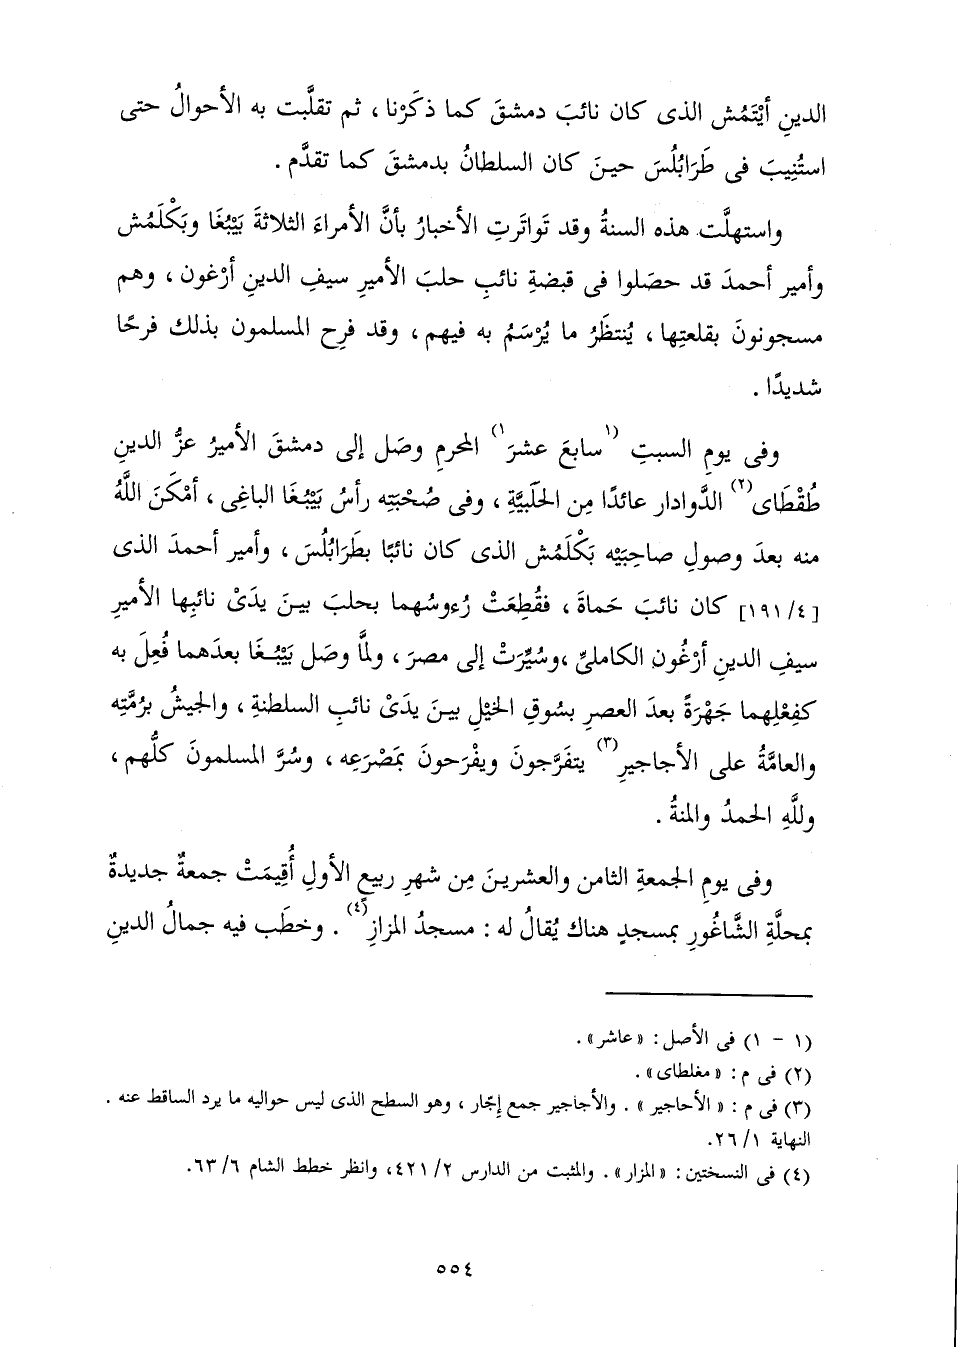 الدينِ أَيْتَمُش الذى كان نائبَ دمشقَ كما ذكَرْنا ، ثم تقلَّبت به الأحوالُ حتى
استُنِيبَ فى طَرَابُلُسَ حينَ كان السلطانُ بدمشقَ كما تقدَّم .
واستهلَّت هذه السنةُ وقد تَواتَرتِ الأخبارُ بأنَّ الأمراءَ الثلاثةَ بَيْبُغَا وبَكْلَمُش
وأمير أحمدَ قد حصَلوا فى قبضةِ نائبِ حلبَ الأميرِ سيفِ الدينِ أرْغون ، وهم
مسجونونَ بقلعتِها ، يُنتظَرُ ما يُرْسَمُ به فيهم ، وقد فرِح المسلمون بذلك فرحًا
شديدًا .
وفى يومِ السبتِ (١ سابعَ عشرَ ١) المحرمِ وصَل إلى دمشقَ الأميرُ عزُّ الدينِ
طُقْطَاى (٢) الدَّوادار عائدًا مِن الحَلَبيَّةِ ، وفى صُحْبَتِه رأسُ بَيْبُغَا الباغِى ، أمْكَنَ اللَّهُ
منه بعدَ وصولِ صاحِبَيْه بَكْلَمُش الذى كان نائبًا بطَرَابُلُسَ ، وأمير أحمدَ الذى
[٤/ ١٩١] كان نائبَ حَماةَ ، فقُطِعَتْ رُءوسُهما بحلبَ بينَ يدَىْ نائبِها الأميرِ
سيفِ الدينِ أرْغُونِ الكاملىِّ ،وسُيِّرَتْ إلى مصرَ ، ولمَّا وصَل بَيْبُغَا بعدَهما فُعِلَ به
كفِعْلِهما جَهْرَةً بعدَ العصرِ بسُوقِ الخيْلِ بينَ يدَىْ نائبِ السلطنةِ ، والجيشُ برُمَّتِه
والعامَّةُ على الأجاجيرِ (٣) يتفَرَّجونَ ويفْرَحونَ بمَصْرَعِه ، وسُرَّ المسلمونَ كلُّهم ،
وللَّهِ الحمدُ والمنةُ .
وفى يومِ الجمعةِ الثامنِ والعشرينَ مِن شهرِ ربيعٍ الأولِ أُقِيمَتْ جمعةٌ جديدةٌ
بمحلَّةِ الشَّاغُورِ بمسجدٍ هناك يُقالُ له : مسجدُ المزازِ (٤) . وخطَب فيه جمالُ الدينِ
(١ - ١) فى الأصل : « عاشر » .
(٢) فى م : « مغلطاى » .
(٣) فى م : « الأحاجير » . والأجاجير جمع إجّار ، وهو السطح الذى ليس حواليه ما يرد الساقط عنه .
النهاية ١/ ٢٦.
(٤) فى النسختين : « المزار » . والمثبت من الدارس ٢/ ٤٢١، وانظر خطط الشام ٦/ ٦٣.
٥٥٤